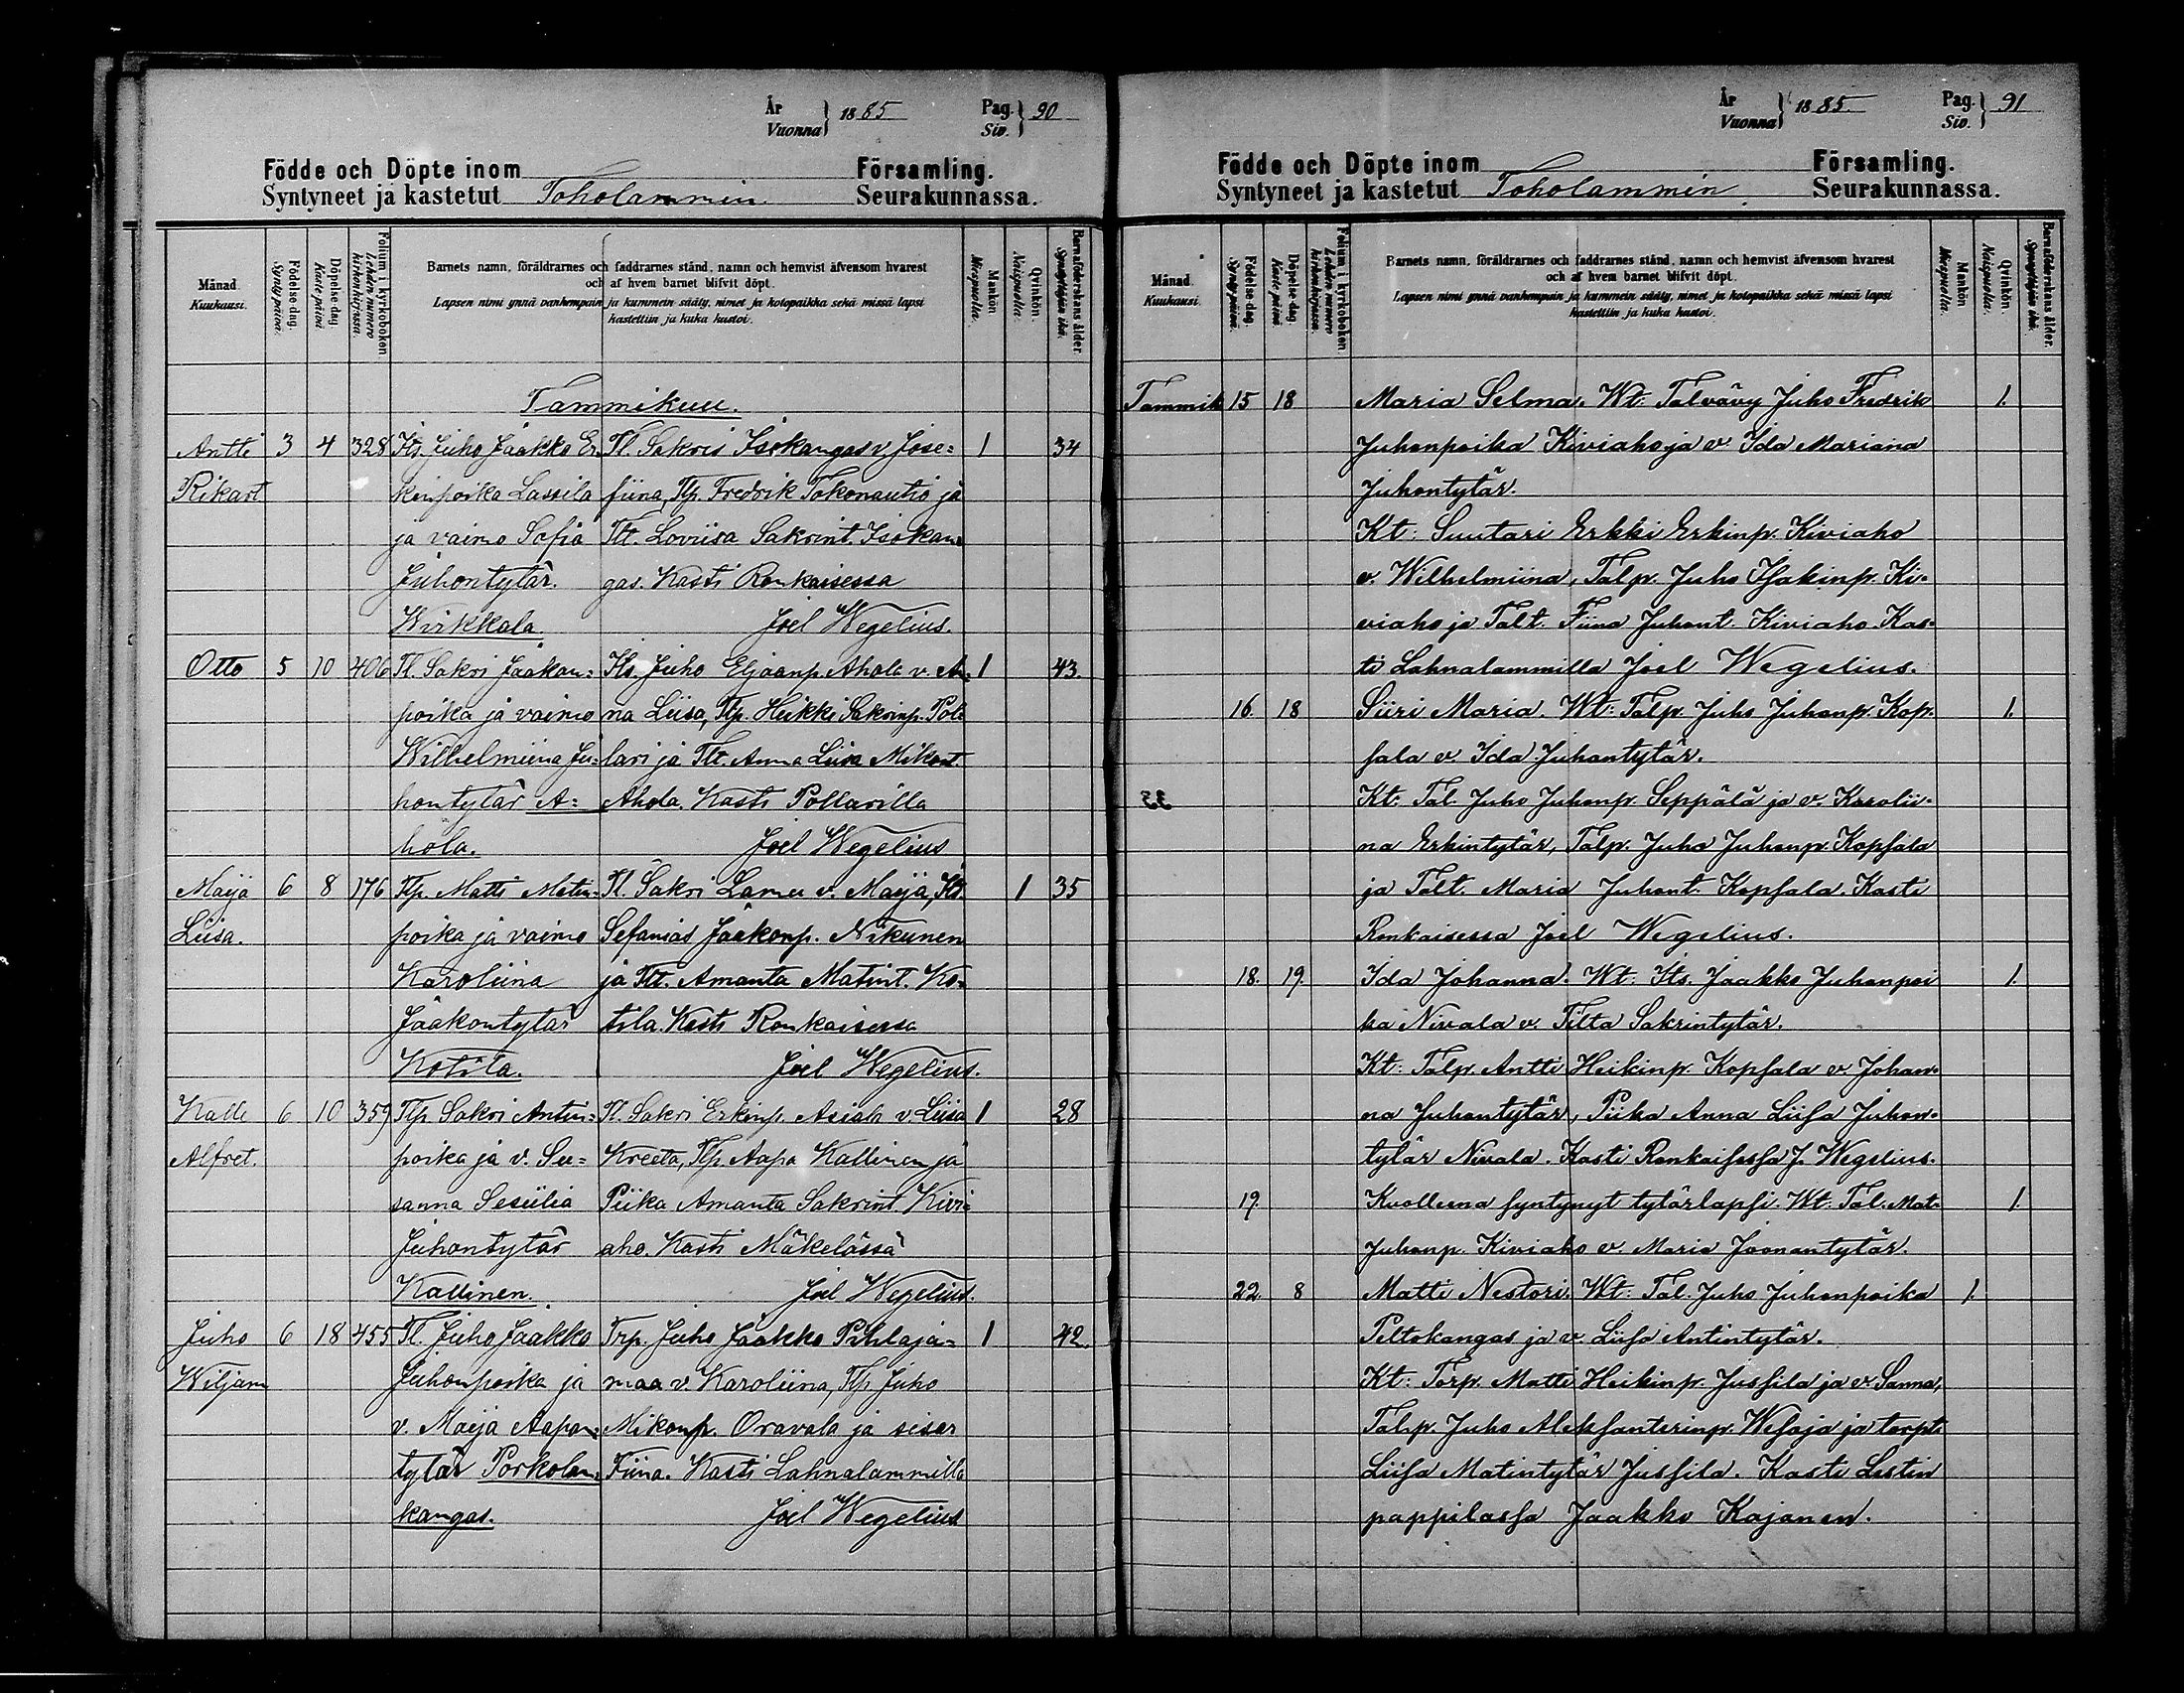 År
Vuonna } 1885 Pag.
Siv. } 90
Födde och Döpte inom Församling.
Syntyneet ja kastetut Toholammin Seurakunnassa.
Månad.
Kuukausi.
Födelse-dag.
Syntypäivä.
Döpelse-dag.
Kaste päivä
Folium i kyrkoboken
Lehden numero
kirkonkirjassa.
Barnets namn, föräldrarnes och faddrarnes stånd, namn och hemvist äfvensom hvarest
och af hvem barnet blifvit döpt.
Lapsen nimi ynnä vanhempain ja kummein sääty, nimet ja kotopaikka sekä missä lapsi
kastettiin ja kuka kastoi.
Mankön
Miespuolia.
Qvinkön.
Naispuolia.
Barnaföderskans ålder.
Synnyttäjän ikä.
Tammikuu.
Antti 3 4 328 Its. Juho Jaakko Er- Tl. Sakris Isokangas v Jose= 1 34
Rikart kinpoika Lassila fiina, Tlp. Fredrik Tokonautio ja
ja vaimo Sofia Tlt. Loviisa Sakrint. Isokan=
Juhontytär. gas. Kasti Ronkaisessa
Wirkkala. Joel Wegelius.
Otto 5 10 406 Tl. Sakri Jaakon= Its. Juho Eljaanp. Ahola v. An= 1 43.
poika ja vaimo na Liisa, Tlp. Heikki Sakrinp. Pol=
Wilhelmiina Ju= lari ja Tlt. Anna Liisa Mikont.
hontytär A= Ahola. Kasti Pollarilla
hola. Joel Wegelius
Maija 6 8 176 Tlp. Matti Matin= Tl. Sakri Lamu v. Maija, Its. 1 35
Liisa. poika ja vaimo Sefanias Jaakonp. Niikunen
Karoliina ja Tlt. Amanta Matint. Ko=
Jaakontytär tila. Kasti Ronkaisessa
Kotila. Joel Wegelius.
Kalle 6 10 359 Tlp Sakri Antin= Tl. Sakri Erkinp. Asiala v. Liisa 1 28
Alfret. poika ja v. Su= Kreeta, Tlp. Aapa Kallinen ja
sanna Sesiilia Piika Amanta Sakrint. Kivi=
Juhontytär aho. Kasti Mäkelässä
Kallinen. Joel Wegelius.
Juho 6 18 455 Tl. Juho Jaakko Trp. Juho Jaakko Pihlaja= 1 42.
Wiljam Juhonpoika ja maa v. Karoliina, Tlp Juho
v. Maija Aapon= Mikonp. Oravala ja sisar
tytär Porkolan= Fiina. Kasti Lahnalammilla
kangas. Joel Wegelius
År
Vuonna } 1885. Pag.
Siv. } 91
Födde och Döpte inom Församling.
Syntyneet ja kastetut Toholammin Seurakunnassa.
Månad.
Kuukausi.
Födelse-dag.
Synty päivä.
Döpelse-dag.
Kaste päivä.
Folium i kyrkoboken.
Lehden numero
kirkonkirjassa.
Barnets namn, föräldrarnes och faddrarnes stånd, namn och hemvist äfvensom hvarest
och af hvem barnet blifvit döpt.
Lapsen nimi ynnä vanhempain ja kummein sääty, nimet ja kotopaikka sekä missä lapsi
kastettiin ja kuka kastoi.
Mankön
Miespuolia.
Qvinkön.
Naispuolia.
Barnaföderskans ålder.
Synnyttäjän ikä.
Tammik 15 18 Maria Selma. Wt: Talvävy Juho Fredrik 1.
Juhonpoika Kiviaho ja v. Ida Mariana
Juhontytär.
Kt: Suutari Erkki Erkinp. Kiviaho
v. Wilhelmiina, Talp. Juho Isakinp. Ki-
viaho ja Talt. Fiina Juhont. Kiviaho Kas-
ti Lahnalammilla Joel Wegelius.
16. 18 Siiri Maria. Wt: Talp. Juho Juhonp. Kop- 1.
sala v. Ida Juhontytär.
Kt: Tal. Juho Juhonp. Seppälä ja v. Karolii-
na Erkintytär, Talp. Juho Juhonp. Kopsala
ja Talt. Maria Juhont. Kopsala. Kasti
Ronkaisessa Joel Wegelius.
18. 19. Ida Johanna. Wt: Its. Jaakko Juhonpoi 1.
ka Nivala v. Tilta Sakrintytär.
Kt: Talp. Antti Heikinp. Kopsala v. Johan-
na Juhontytär, Piika Anna Liisa Juhon-
tytär Nivala. Kasti Ronkaisessa J. Wegelius.
19. Kuolleena syntynyt tytärlapsi. Wt: Tal. Mat- 1.
Juhonp. Kiviaho v. Maria Joonantytär.
22. 8 Matti Nestori. Wt: Tal. Juho Juhonpoika 1.
Peltokangas ja v. Liisa Antintytär.
Kt: Torp. Matti Heikinp. Jussila ja v. Sanna,
Talp. Juho Aleksanterinp. Wesaja ja torpt.
Liisa Matintytär Jussila. Kasti Lestin
pappilassa Jaakko Kajanen.